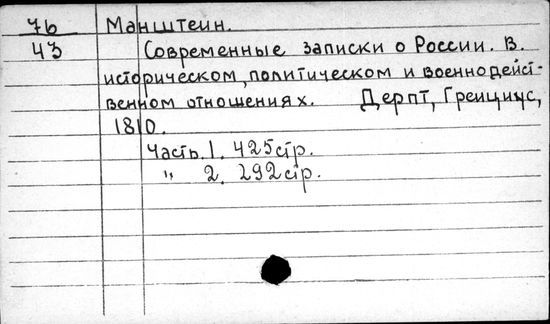 76 Манштейн.
43 Современные записки о России. В.
историческом, политическом и военнодейст-
венном отношениях. Дерпт, Гренциус,
1810.
Часть. 1. 425 стр.
" 2. 292 стр.